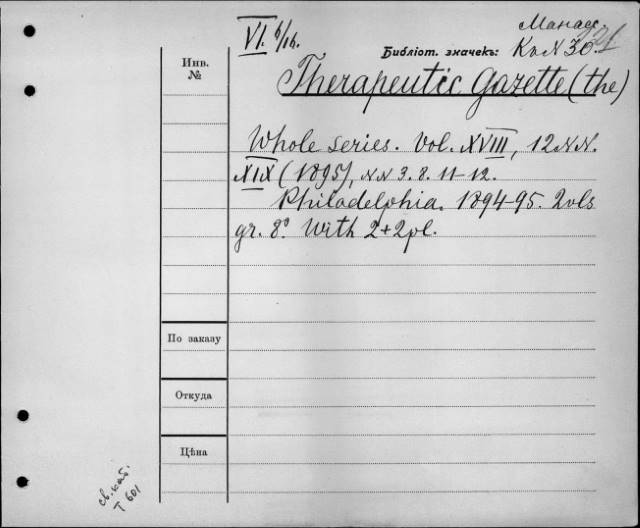 VI. 6/16.
Манас.
221
Библіот. значекъ: К. N 30.
Инв.
№
Therapeutic Gazette (the)
Whole series. Vol. XVIII, 12 NN.
XIX (1895), NN 3. 8. 11-12.
Philadelphia. 1894-95. 2 vls
gr. 8° With 2+2 pl.
По заказу
Откуда
Цѣна
св. кат.
T 601